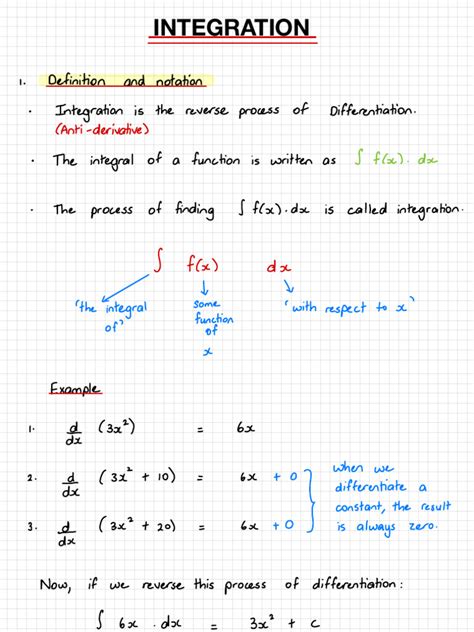 INTEGRATION
1. Definition and notation
· Integration is the reverse process of Differentiation.
(Anti-derivative)
· The integral of a function is written as ∫ f(x). dx
· The process of finding ∫ f(x). dx is called integration.
∫ f(x) dx
'the integral of'
some function of x
'with respect to x'
Example
1. d/dx (3x²) = 6x
2. d/dx (3x² + 10) = 6x + 0
3. d/dx (3x² + 20) = 6x + 0
when we
differentiate a
constant, the result
is always zero.
Now, if we reverse this process of differentiation:
∫ 6x . dx = 3x² + c